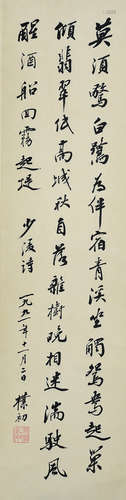 莫須驚白鷺為伴宿青溪坐觸鴛鴦起巢
傾翡翠低高城秋自落雜樹晚相迷湍駛風
醒酒船回霧起堤 少陵詩 一九九一年十一月二日 樸初